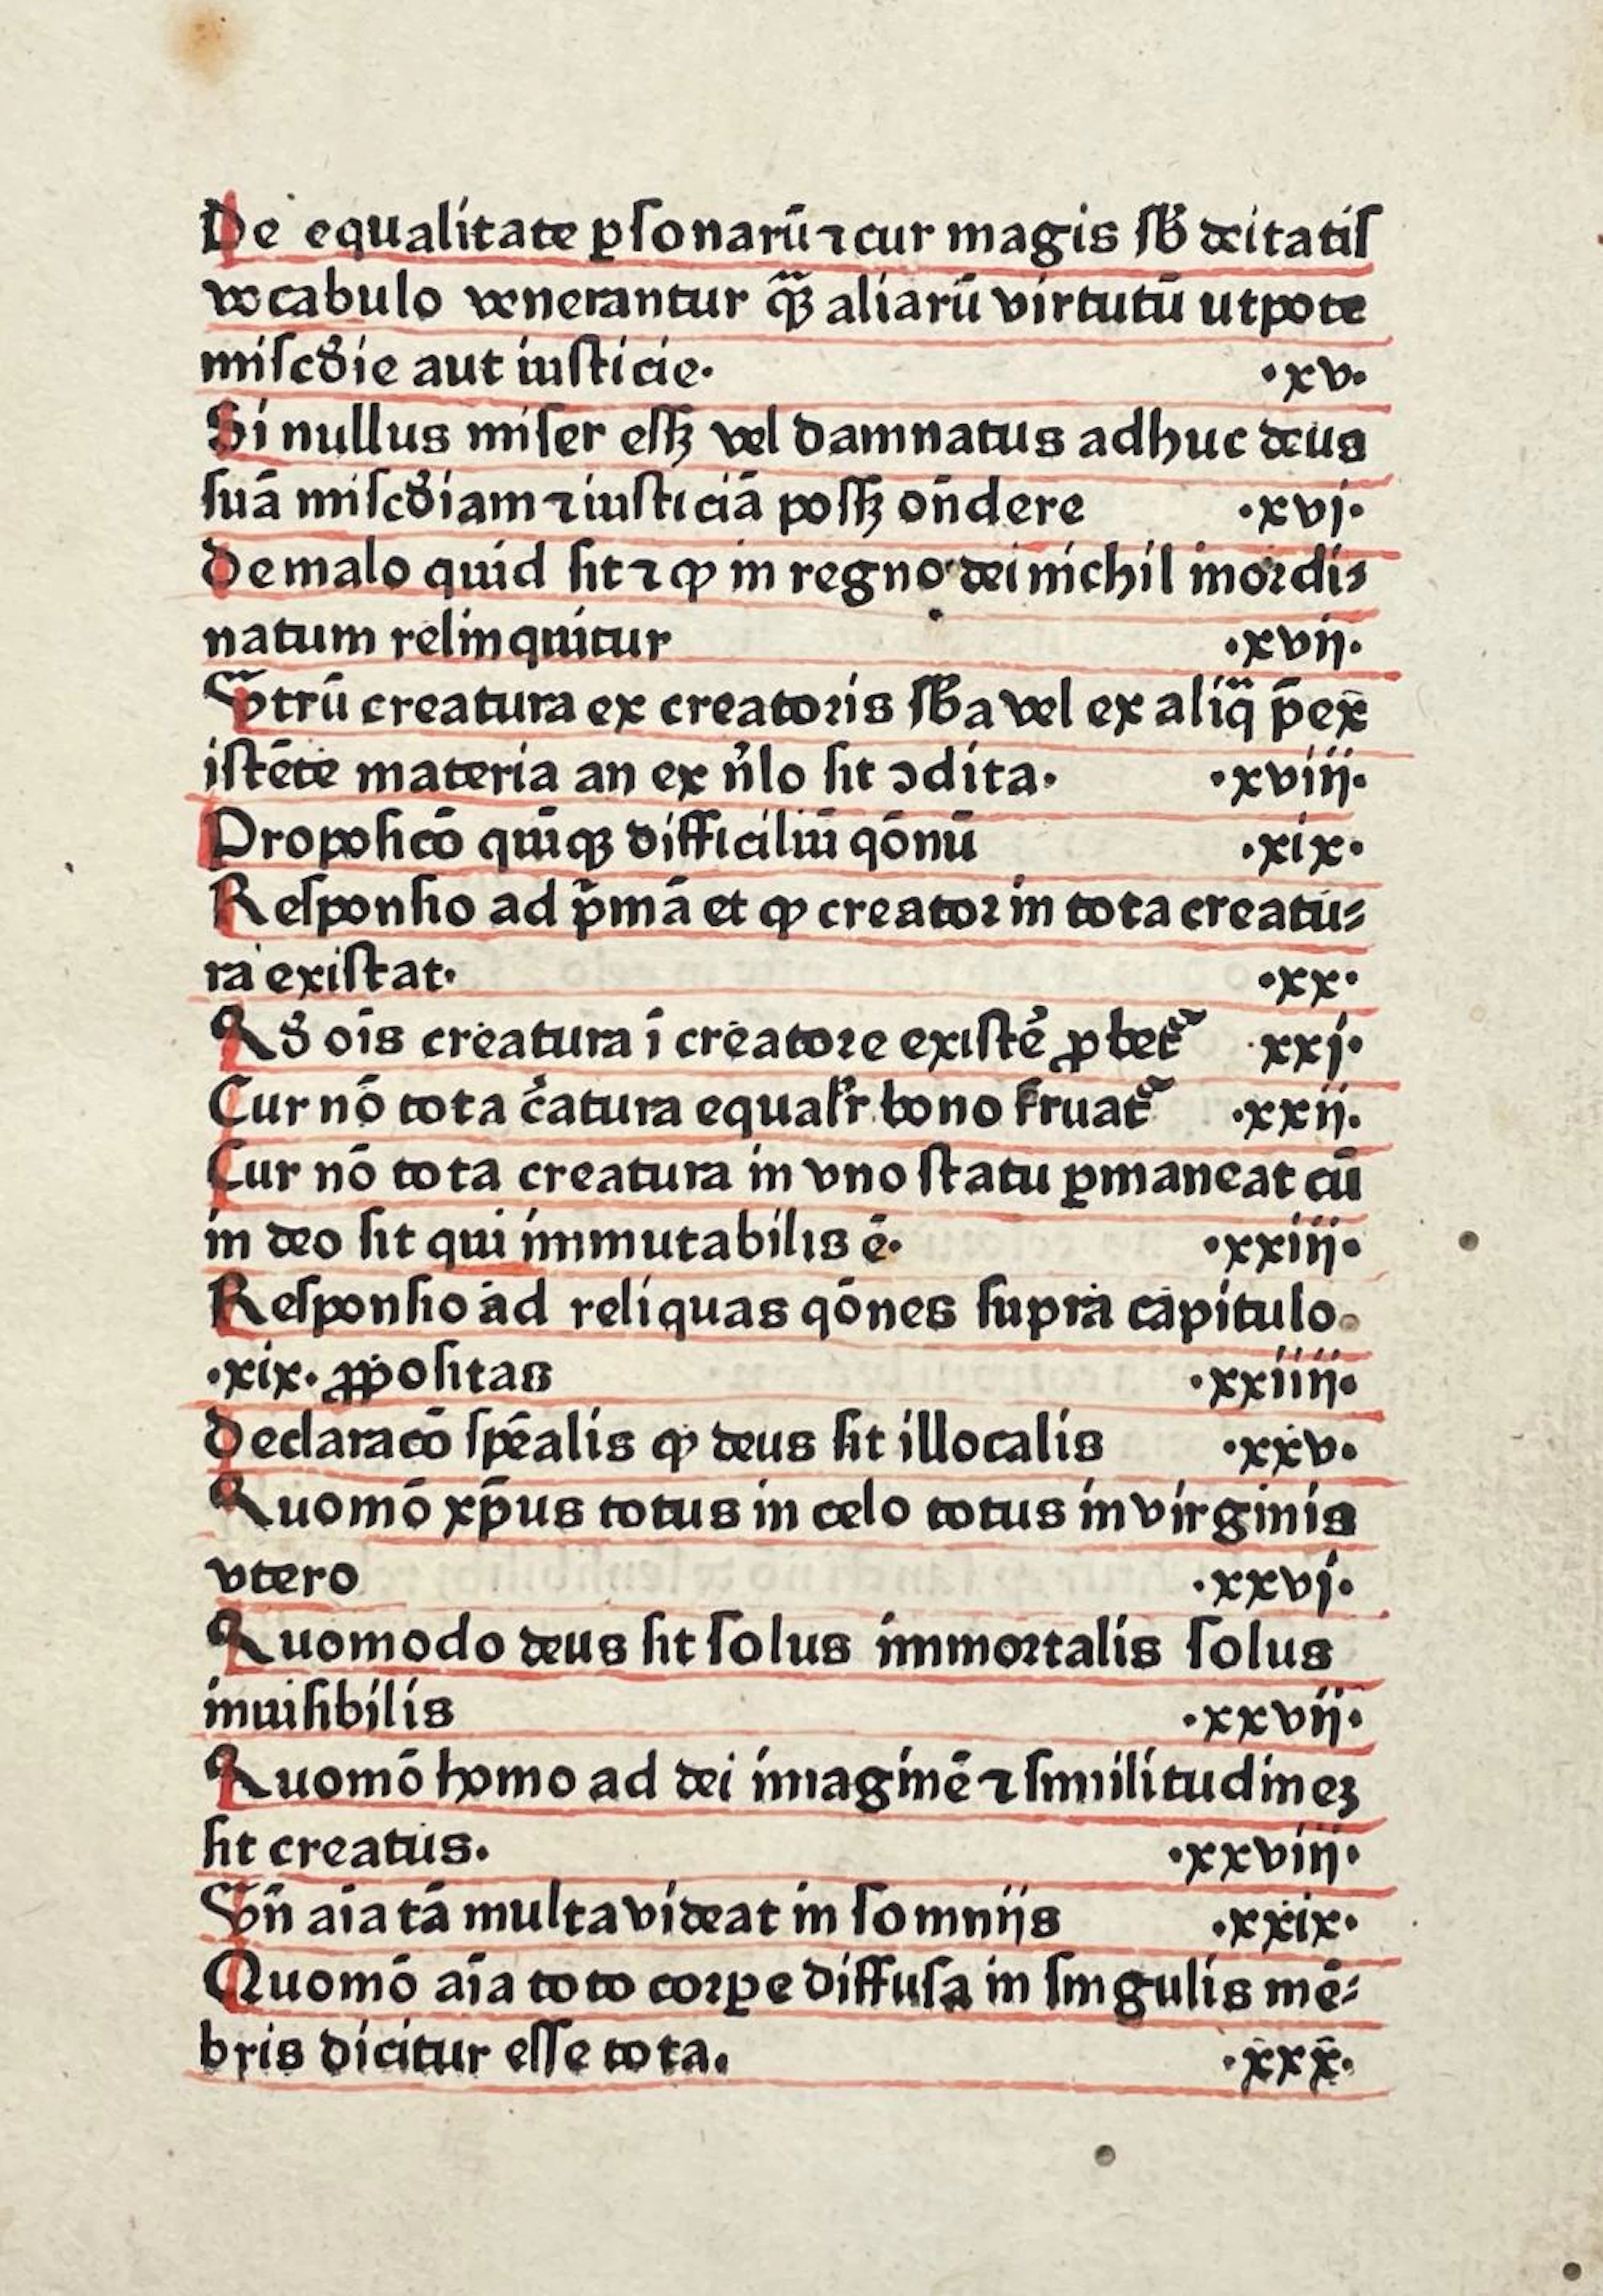 De equalitate ꝑſonarū ⁊ cur magis ſƀ deitatiſ
vocabulo venerantur q̄ꝫ aliarū virtutū utpote
miſcd̓ie aut iuſticie. ·xv·
Si nullus miſer eſſꝫ vel damnatus adhuc deus
ſuā miſcd̓iam ⁊ iuſticiā poſſꝫ on̄dere ·xvj·
De malo quid ſit ⁊ ꝙ in regno dei nichil inordi⸗
natum relinquitur ·xvij·
Vtrū creatura ex creatoris ſƀa vel ex aliq̄ p̄ex
iſtēte materia an ex n̓lo ſit ↄdita. ·xviij·
Propoſicō quīqꝫ difficiliū qōnū ·xix·
Reſponſio ad p̄mā et ꝙ creator in tota creatu⸗
ra exiſtat. ·xx·
Qd̓ oīs creatura ī creatore exiſtē̓ ꝓbet᷑ ·xxj·
Cur nō tota c̓atura equalr̓ bono fruat᷑ ·xxij·
Cur nō tota creatura in vno ſtatu ꝑmaneat cū
in deo ſit qui immutabilis ē. ·xxiij·
Reſponſio ad reliquas qōnes ſupra capitulo
·xix· ꝓpoſitas ·xxiiij·
Declaracō ſpēalis ꝙ deus ſit illocalis ·xxv·
Quomō xp̄us totus in celo totus in virginis
vtero ·xxvj·
Quomodo deus ſit ſolus immortalis ſolus
inuiſibilis ·xxvij·
Quomō homo ad dei imaginē ⁊ ſimilitudineꝫ
ſit creatus. ·xxviij·
Vn̄ aīa tā multa videat in ſomnijs ·xxix·
Quomō aīa toto corꝑe diffuſa in ſingulis mē⸗
bris dicitur eſſe tota. ·xxx·